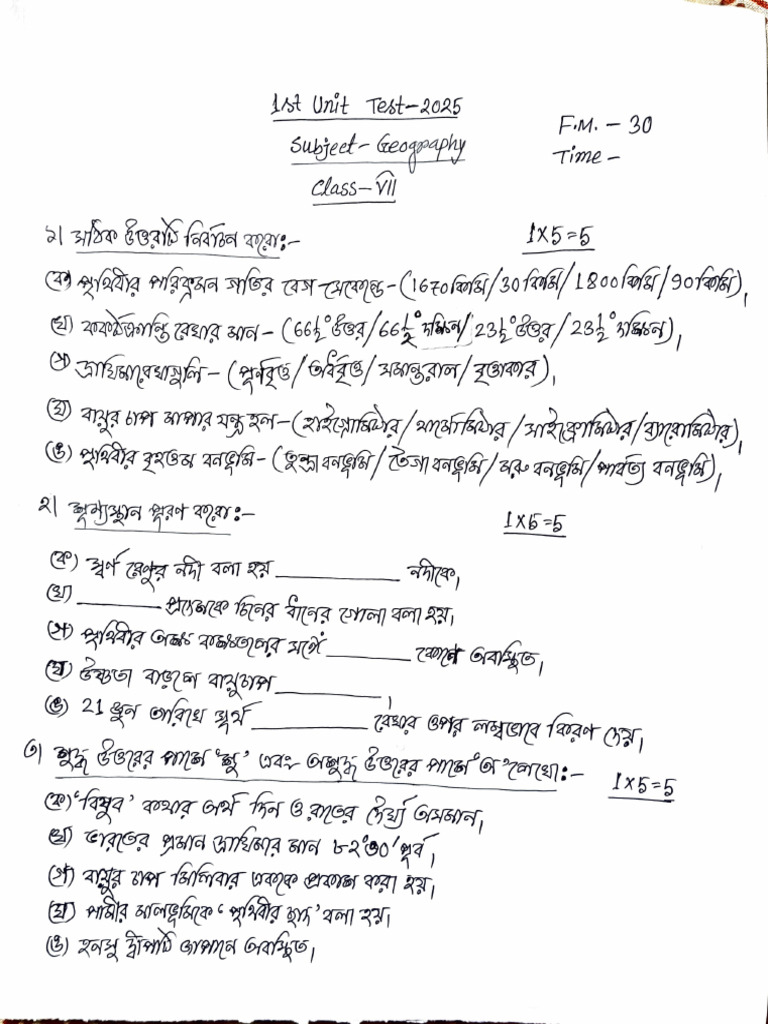 1st Unit Test-2025
Subject- Geography
F.M. - 30
Time -
Class-VII
১। সঠিক উত্তরটি নির্বাচন করো:- 1×5=5
(ক) পৃথিবীর পরিক্রমন গতির বেগ-সেকেন্ডে-(1670কিমি/30কিমি/1800কিমি/90কিমি)।
(খ) কর্কটক্রান্তি রেখার মান-(66½°উত্তর/66½°দক্ষিন/23½°উত্তর/23½°দক্ষিন)।
(গ) দ্রাঘিমারেখাগুলি-(পূর্ণবৃত্ত/অর্ধবৃত্ত/সমান্তরাল/বৃত্তাকার)।
(ঘ) বায়ুর চাপ মাপার যন্ত্র হল-(হাইগ্রোমিটার/থার্মোমিটার/সাইক্রোমিটার/ব্যারোমিটার)।
(ঙ) পৃথিবীর বৃহত্তম বনভূমি-(তুন্দ্রাবনভূমি/তৈগাবনভূমি/মরু বনভূমি/পার্বত্য বনভূমি)।
২। শূন্যস্থান পূরণ করো:- 1×5=5
(ক) স্বর্ণ রেণুর নদী বলা হয় ________ নদীকে।
(খ) ________ প্রদেশকে চিনের ধানের গোলা বলা হয়।
(গ) পৃথিবীর অক্ষ কক্ষতলের সঙ্গে ________ কোণে অবস্থিত।
(ঘ) উষ্ণতা বাড়লে বায়ুচাপ ________।
(ঙ) 21 জুন তারিখে সূর্য ________ রেখার ওপর লম্বভাবে কিরণ দেয়।
৩) শুদ্ধ উত্তরের পাশে 'শু' এবং অশুদ্ধ উত্তরের পাশে 'অ' লেখো:- 1×5=5
(ক) 'বিষুব' কথার অর্থ দিন ও রাতের দৈর্ঘ্য অসমান।
(খ) ভারতের প্রমান দ্রাঘিমার মান ৮২°৩০' পূর্ব।
(গ) বায়ুর চাপ মিলিবার এককে প্রকাশ করা হয়।
(ঘ) পামীর মালভূমিকে 'পৃথিবীর ছাদ' বলা হয়।
(ঙ) হনসু দ্বীপটি জাপানে অবস্থিত।